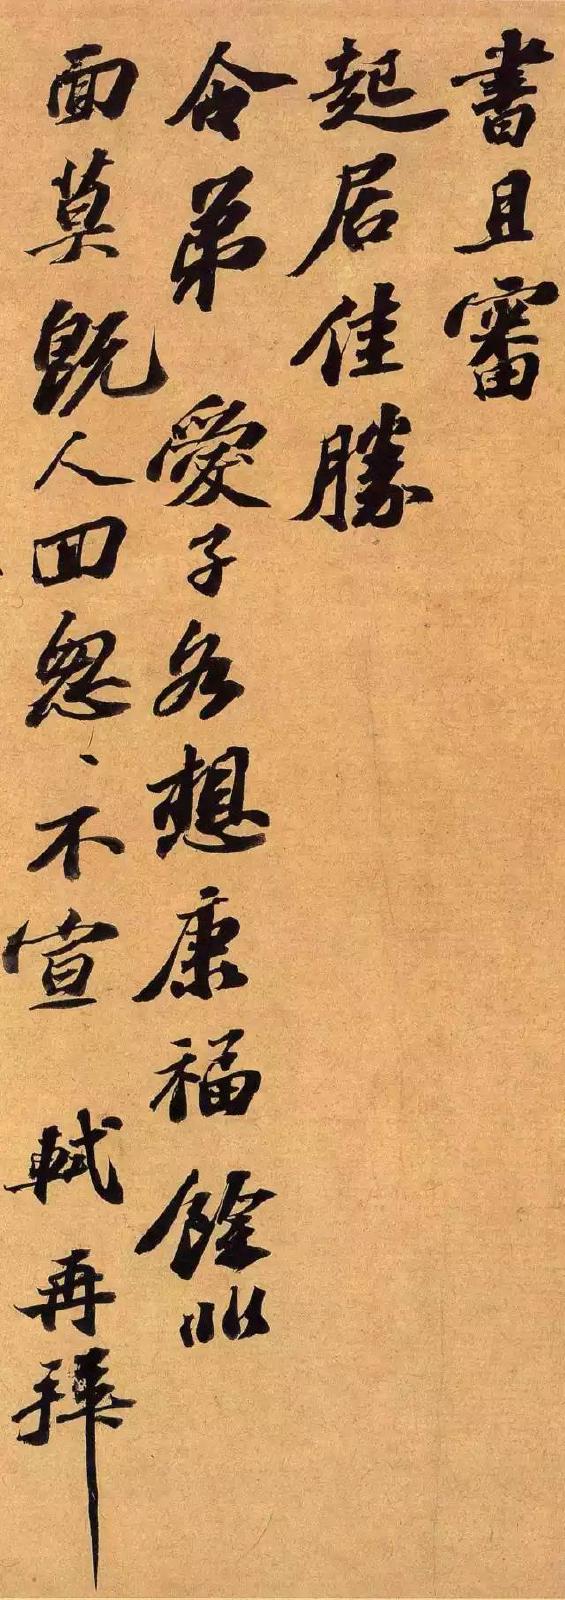 書且審
起居佳勝
令弟 愛子各想康福餘非
面莫既人回怱々不宣 軾再拜